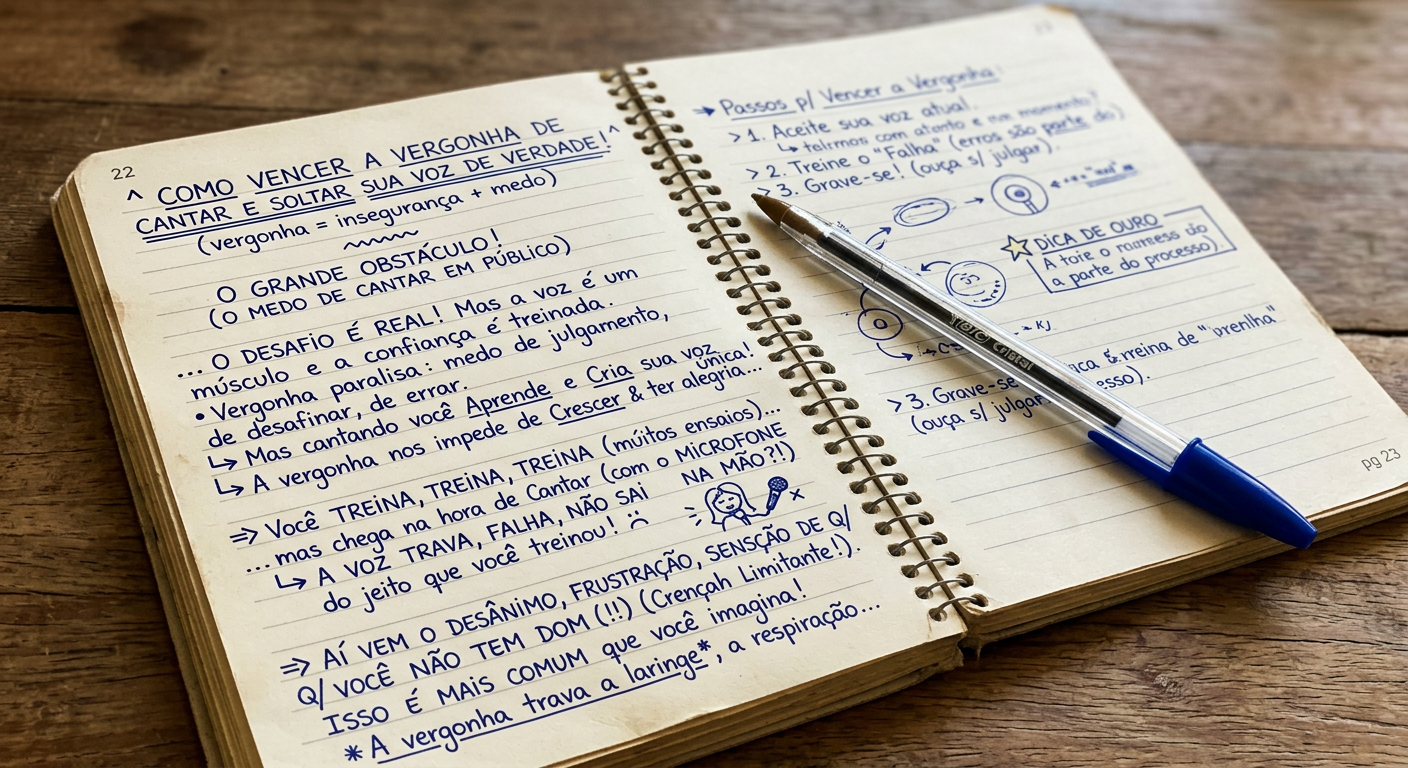 22
^ COMO VENCER A VERGONHA DE
CANTAR E SOLTAR SUA VOZ DE VERDADE! ^
(vergonha = insegurança + medo)
O GRANDE OBSTÁCULO!
(O MEDO DE CANTAR EM PÚBLICO)
... O DESAFIO É REAL! Mas a voz é um
músculo e a confiança é treinada.
• Vergonha paralisa: medo de julgamento,
de desafinar, de errar.
↳ Mas cantando você Aprende e Cria sua voz única!
↳ A vergonha nos impede de Crescer & ter alegria...
⇒ Você TREINA, TREINA, TREINA (múitos ensaios)...
... mas chega na hora de Cantar (com o MICROFONE
NA MÃO?!)
↳ A VOZ TRAVA, FALHA, NÃO SAI
do jeito que você treinou! :(
x
⇒ AÍ VEM O DESÂNIMO, FRUSTRAÇÃO, SENSÇÃO DE Q/
Q/ VOCÊ NÃO TEM DOM (!!) (Crençah Limitante!).
ISSO É MAIS COMUM que você imagina!
* A vergonha trava a laringe*, a respiração...
→ Passos p/ Vencer a Vergonha:
> 1. Aceite sua voz atual.
↳ com e momento?
> 2. Treine o "Falha" (erros são parte do)
> 3. Grave-se! (ouça s/ julgar).
DICA DE OURO
A o
a parte do processo).
KJ
de
> 3. Grave-se
(ouça s/ julgar
Cristal
pg 23